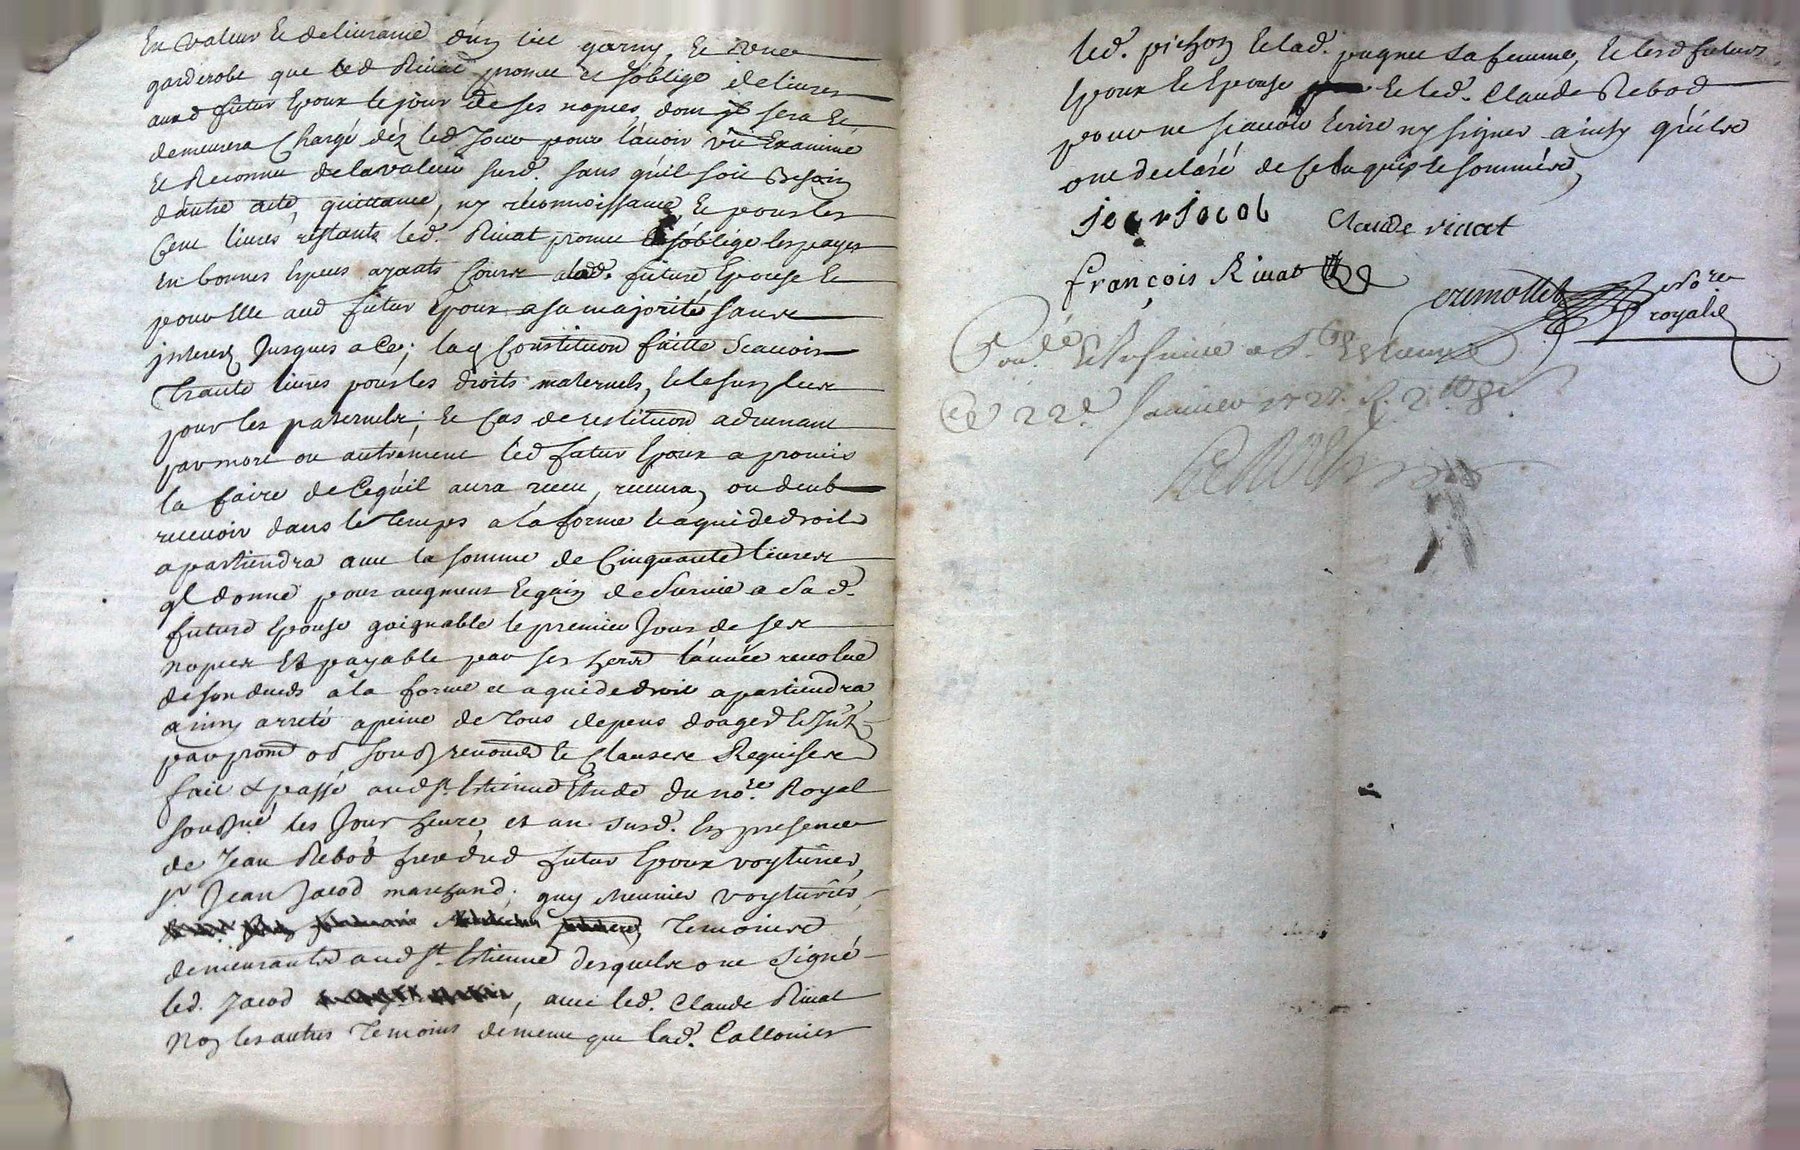 En valeur et delivrance d'un lict garny, et d'une
garderobe que led Rivat promet et s'oblige delivrer
aud futur Epoux le jour de ses nopces, dont il sera et
demeurera Chargé déz led. Jour pour l'avoir vû Examiné
et Reconnu de la valeur surd. sans qu'il soit Besoin
d'autre acte, quittance, ny réconnoissance, Et pour les
Cent livres restants led. Rivat promet et s'oblige les payer
en bonnes Especes ayants Cours alad. future Epouse et
pour elle aud futur Epoux a sa majorité sans
interest Jusques a Ce; laq Constitution faitte Scavoir
Trante livres pour les droits maternels, et le surplus
pour les paternels; Et Cas de restitution advenant
par mort ou autrement led futur Epoux a promis
la faire de Ce qu'il aura receu, recevra, ou deub
recevoir dans le temps a la forme et a qui de droit
apartiendra avec la somme de Cinquante livres
ql donne pour augment et gain de survie a sad.
future Epouse gaignable le premier Jour de ses
nopces et payable par ses hers l'année revolue
de son deceds à la forme et a qui de droit apartiendra
ainsy arreté a peine de tous depens domages et Intz
par prom ob soubz renond et Clauses Requises
fait & passé aud St. Estienne Etude du nore. Royal
soubné les Jour heure et an surd. En presence
de Jean Rebod frere dud futur Epoux voyturier,
sr Jean Jacod marchand; guy Meunier voyturier,
Temoins
demeurants aud St. Estienne desquels ont signé
led. Jacod, avec led. Claude Rivat
Non les autres Temoins de meme que lad. Callonier
led. pichon et lad. pagnec sa femme, et lesd futurs
Epoux et Epouse et led. Claude Rebod
pour ne scavoir Ecrire ny signer ainsy qu'ils
ont declaré de Ce Enquis et sommés,
jean jacod Claude rivat
françois Rivat
nore
royal
Conlé Et Insinué a St. Estienne
Ce 22e Janvier 1727. R. 2